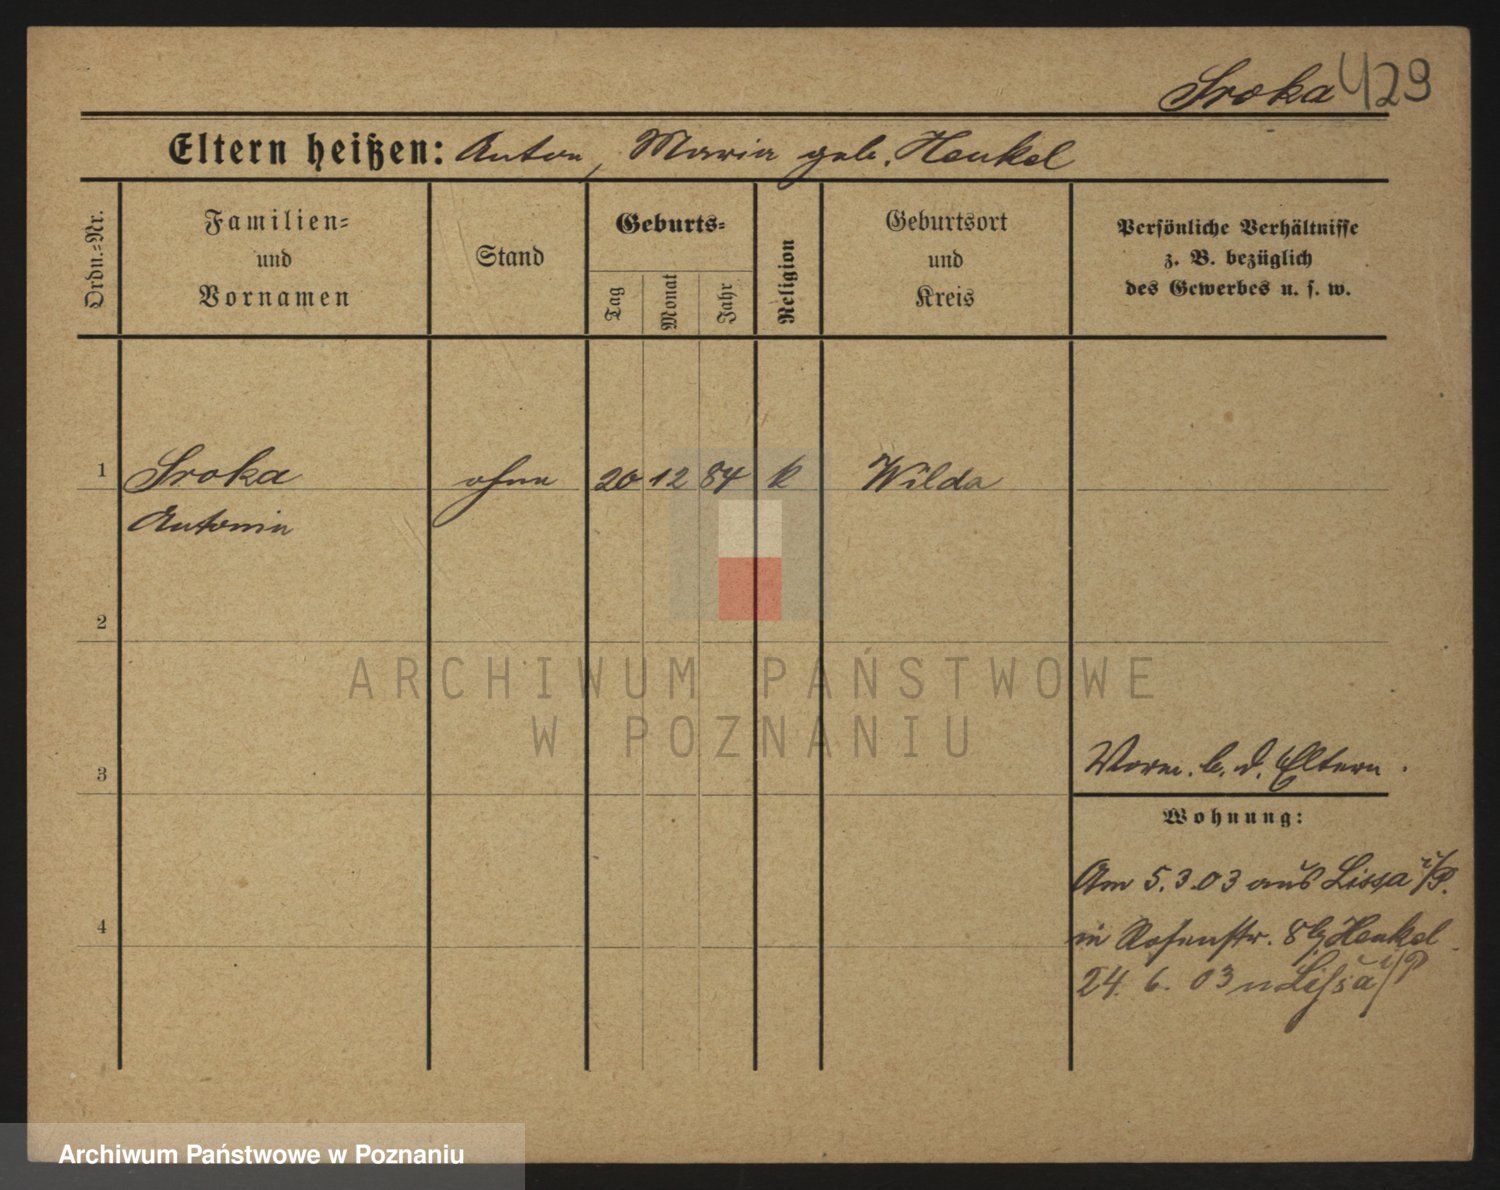 Sroka 429
Eltern heißen: Anton, Maria geb. Henkel
Ordn.-Nr.
Familien-
und
Vornamen
Stand
Geburts-
Tag
Monat
Jahr
Religion
Geburtsort
und
Kreis
Persönliche Verhältnisse
z. B. bezüglich
des Gewerbes u. s. w.
1 Sroka ohne 20 12 84 k Wilda
Antonia
2
ARCHIWUM PAŃSTWOWE
W POZNANIU
3 Vorm. b. d. Eltern.
Wohnung:
Am 5.3.03 aus Lissa i/P.
4 in Rosenstr. 8 b/ Henkel
24. 6. 03 n Lissa i/P
Archiwum Państwowe w Poznaniu